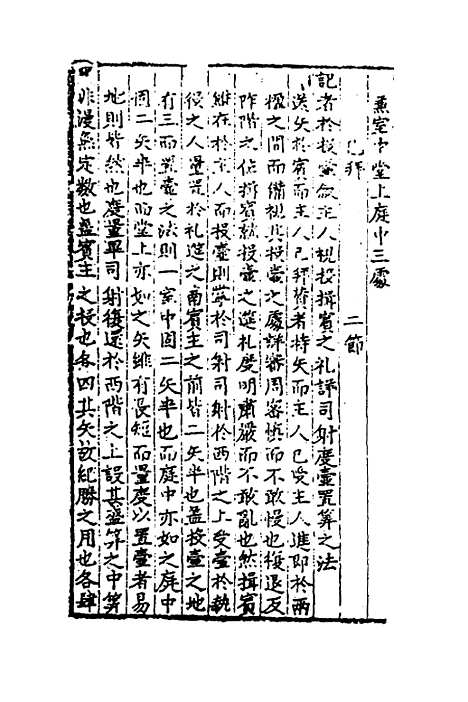 兼室中堂上庭中三處
已拜　　二節
記者於投壺敘主人視投揖賓之礼詳司射度壺置筭之法
送矢於賓而主人已拜贊者持矢而主人已受主人進即於兩
楹之間而備視其投壺之處詳審周密慎而不敢慢也復退反
阼階之位揖賓就投壺之筵礼度明肅嚴而不敢亂也然揖賓
雖在於主人而投壺則掌於司射司射於西階之上受壺於執
役之人量置於礼筵之南賓主之前皆二矢半也盖投壺之地
有三而置壺之法則一室中固二矢半也而庭中亦如之庭中
固二矢半也而堂上亦如之矢雖有長短而量度以置壺者易
地則皆然也度量畢司射復還於西階之上設其盛筭之中筭
非漫無定數也盖賓主之投也各四其矢故紀勝之用也各肆